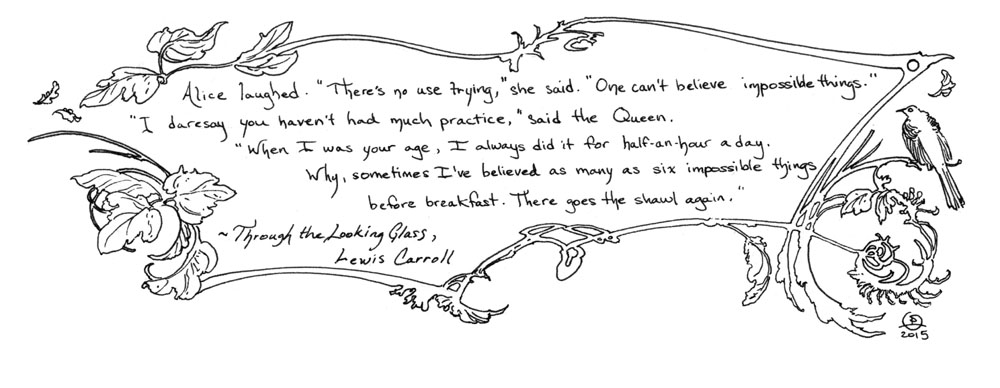 Alice laughed. "There's no use trying," she said. "One can't believe impossible things."
"I daresay you haven't had much practice," said the Queen.
"When I was your age, I always did it for half-an-hour a day.
Why, sometimes I've believed as many as six impossible things
before breakfast. There goes the shawl again."
~ Through the Looking Glass,
Lewis Carroll
2015